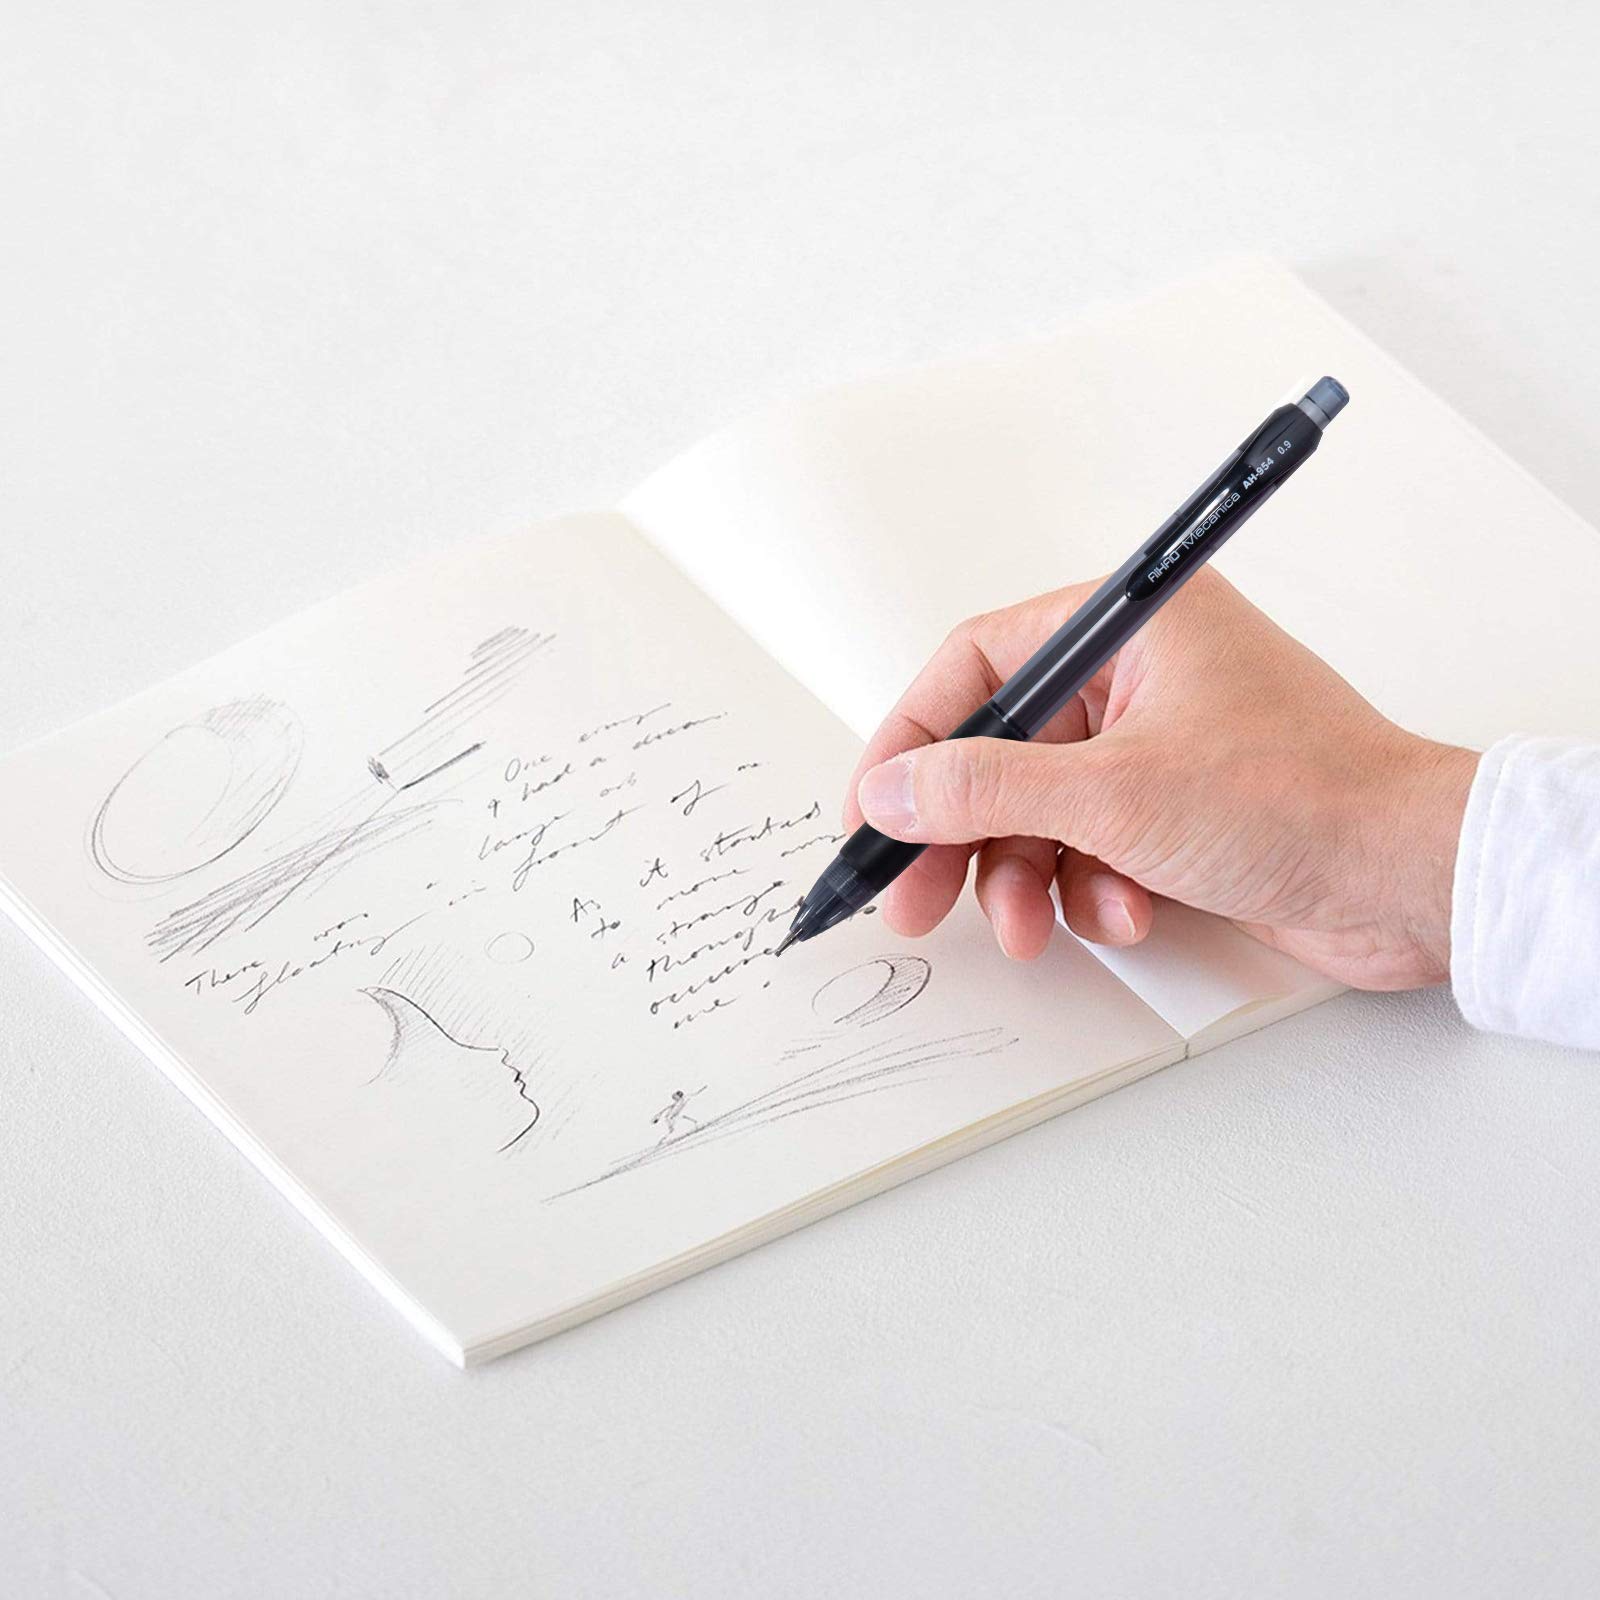 One
I had a dream.
large orb
in front of me.
There was
floating
As it started
to move
a strange
thought
occurred
me.
AIHAO Mecanica AH-954 0.9